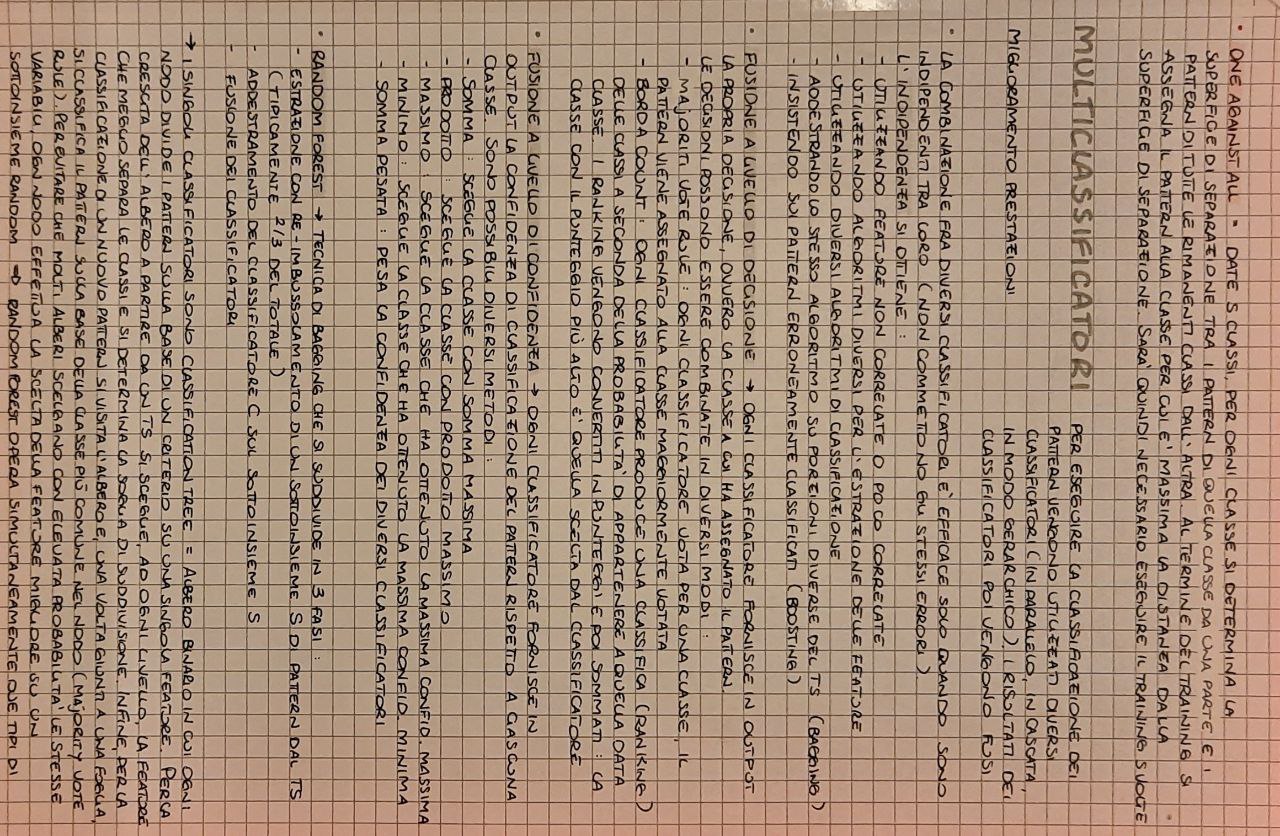 • ONE AGAINST ALL = DATE S CLASSI, PER OGNI CLASSE SI DETERMINA LA
SUPERFICE DI SEPARAZIONE TRA I PATTERN DI QUELLA CLASSE DA UNA PARTE E I
PATTERN DI TUTTE LE RIMANENTI CLASSI DALL'ALTRA. AL TERMINE DEL TRAINING SI
ASSEGNA IL PATTERN ALLA CLASSE PER CUI E' MASSIMA LA DISTANZA DALLA
SUPERFICE DI SEPARAZIONE. SARA' QUINDI NECESSARIO ESEGUIRE IL TRAINING S VOLTE
MULTICLASSIFICATORI
MIGLIORAMENTO PRESTAZIONI
PER ESEGUIRE LA CLASSIFICAZIONE DEI
PATTERN VENGONO UTILIZZATI DIVERSI
CLASSIFICATORI (IN PARALLELO, IN CASCATA,
IN MODO GERARCHICO). I RISULTATI DEI
CLASSIFICATORI POI VENGONO FUSI
• LA COMBINAZIONE FRA DIVERSI CLASSIFICATORI E' EFFICACE SOLO QUANDO SONO
INDIPENDENTI TRA LORO (NON COMMETTONO GLI STESSI ERRORI).
L'INDIPENDENZA SI OTTIENE :
- UTILIZZANDO FEATURE NON CORRELATE O POCO CORRELATE
- UTILIZZANDO ALGORITMI DIVERSI PER L'ESTRAZIONE DELLE FEATURE
- UTILIZZANDO DIVERSI ALGORITMI DI CLASSIFICAZIONE
- ADDESTRANDO LO STESSO ALGORITMO SU PORZIONI DIVERSE DEL TS (BAGGING)
- INSISTENDO SUI PATTERN ERRONEAMENTE CLASSIFICATI (BOOSTING)
• FUSIONE A LIVELLO DI DECISIONE → OGNI CLASSIFICATORE FORNISCE IN OUTPUT
LA PROPRIA DECISIONE, OVVERO LA CLASSE A CUI HA ASSEGNATO IL PATTERN.
LE DECISIONI POSSONO ESSERE COMBINATE IN DIVERSI MODI :
- MAJORITI VOTE RULE : OGNI CLASSIFICATORE VOTA PER UNA CLASSE, IL
PATTERN VIENE ASSEGNATO ALLA CLASSE MAGGIORMENTE VOTATA
- BORDA COUNT : OGNI CLASSIFICATORE PRODUCE UNA CLASSIFICA (RANKING)
DELLE CLASSI A SECONDA DELLA PROBABILITA' DI APPARTENERE A QUELLA DATA
CLASSE. I RANKING VENGONO CONVERTITI IN PUNTEGGI E POI SOMMATI : LA
CLASSE CON IL PUNTEGGIO PIÙ ALTO E' QUELLA SCELTA DAL CLASSIFICATORE
• FUSIONE A LIVELLO DI CONFIDENZA → OGNI CLASSIFICATORE FORNISCE IN
OUTPUT LA CONFIDENZA DI CLASSIFICAZIONE DEL PATTERN RISPETTO A CIASCUNA
CLASSE. SONO POSSIBILI DIVERSI METODI :
- SOMMA : SCEGLIE LA CLASSE CON SOMMA MASSIMA
- PRODOTTO : SCEGLIE LA CLASSE CON PRODOTTO MASSIMO
- MASSIMO : SCEGLIE LA CLASSE CHE HA OTTENUTO LA MASSIMA CONFID. MASSIMA
- MINIMO : SCEGLIE LA CLASSE CHE HA OTTENUTO LA MASSIMA CONFID. MINIMA
- SOMMA PESATA : PESA LA CONFIDENZA DEI DIVERSI CLASSIFICATORI
• RANDOM FOREST → TECNICA DI BAGGING CHE SI SUDDIVIDE IN 3 FASI :
- ESTRAZIONE CON RE-IMBUSSOLAMENTO DI UN SOTTOINSIEME S DI PATTERN DAL TS
(TIPICAMENTE 2/3 DEL TOTALE)
- ADDESTRAMENTO DEL CLASSIFICATORE C SUL SOTTOINSIEME S
- FUSIONE DEI CLASSIFICATORI
→ I SINGOLI CLASSIFICATORI SONO CLASSIFICATION TREE = ALBERO BINARIO IN CUI OGNI
NODO DIVIDE I PATTERN SULLA BASE DI UN CRITERIO SU UNA SINGOLA FEATURE. PER LA
CRESCITA DELL'ALBERO A PARTIRE DA UN TS SI SCEGLIE, AD OGNI LIVELLO, LA FEATURE
CHE MEGLIO SEPARA LE CLASSI E SI DETERMINA LA SOGLIA DI SUDDIVISIONE. INFINE, PER LA
CLASSIFICAZIONE DI UN NUOVO PATTERN SI VISITA L'ALBERO E, UNA VOLTA GIUNTI A UNA FOGLIA,
SI CLASSIFICA IL PATTERN SULLA BASE DELLA CLASSE PIÙ COMUNE NEL NODO (MAJORITY VOTE
RULE). PER EVITARE CHE MOLTI ALBERI SCELGANO CON ELEVATA PROBABILITA' LE STESSE
VARIABILI, OGNI NODO EFFETTUA LA SCELTA DELLA FEATURE MIGLIORE SU UN
SOTTOINSIEME RANDOM ⇒ RANDOM FOREST OPERA SIMULTANEAMENTE DUE TIPI DI